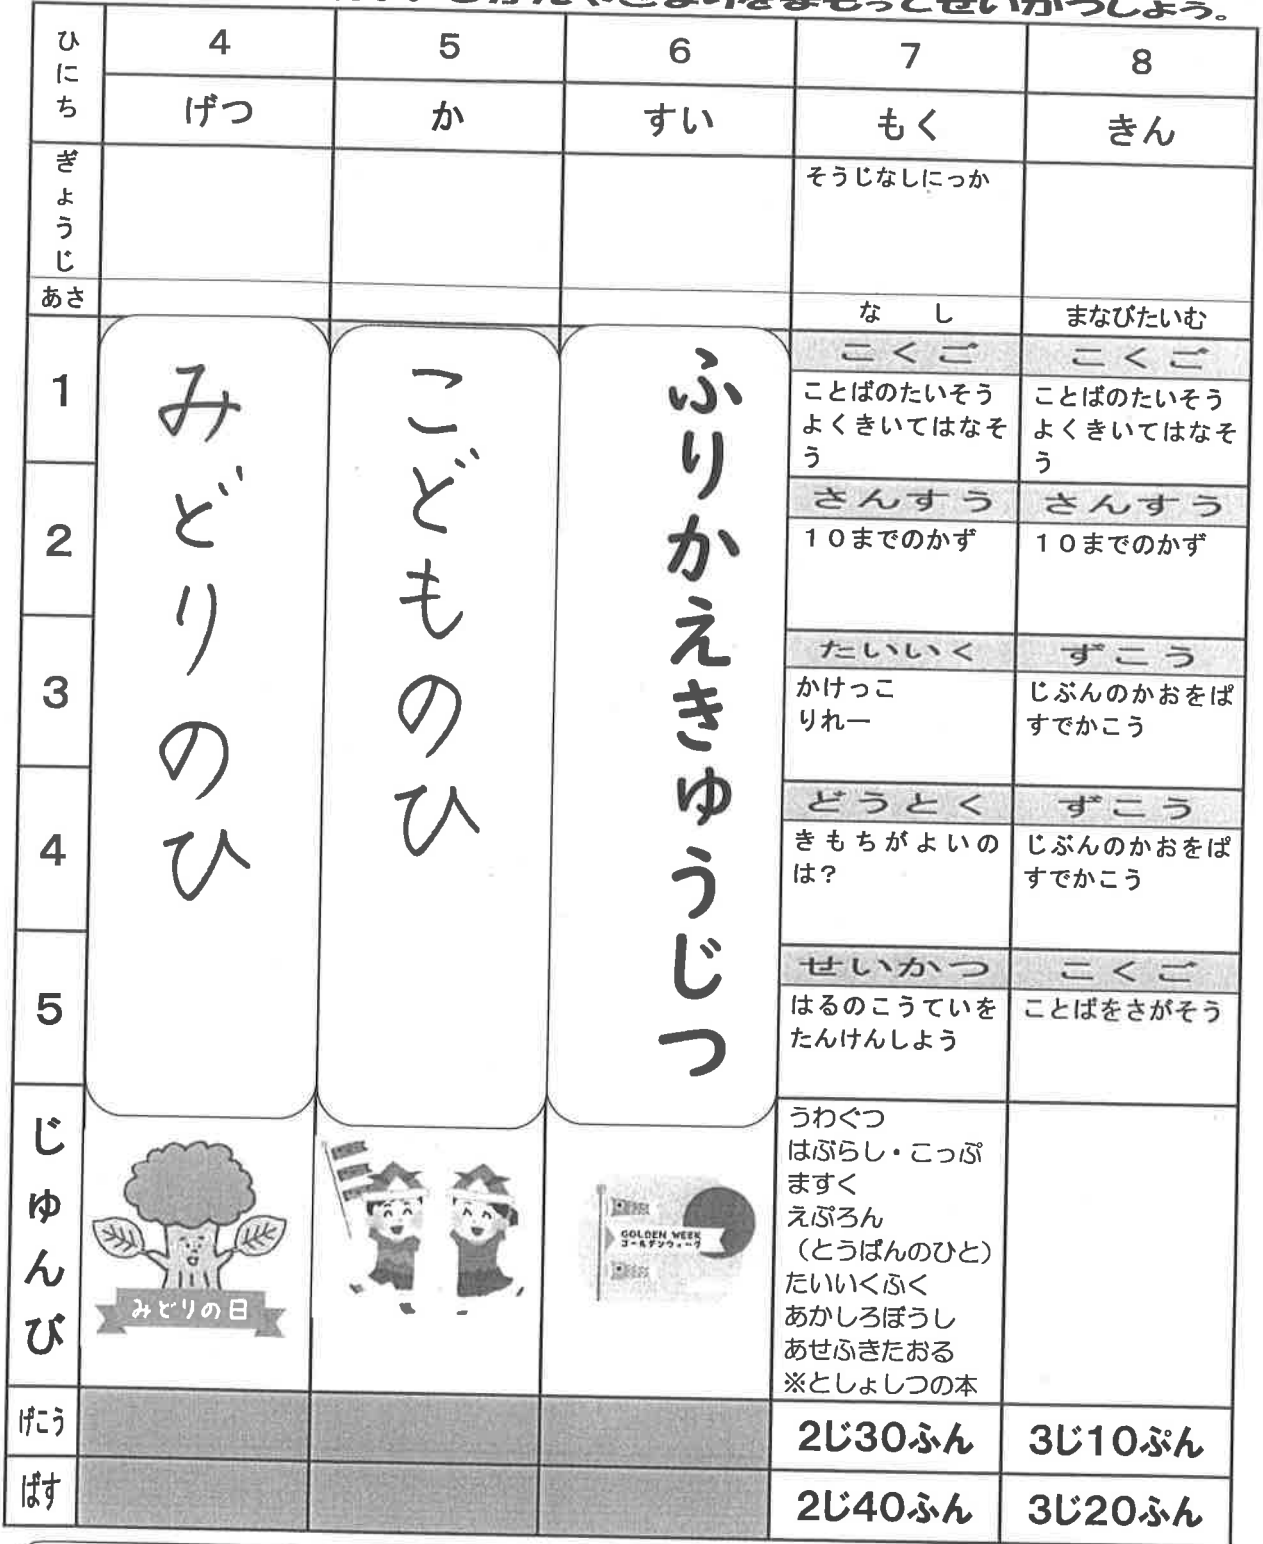 せいかつしよう。
ひにち
4
5
6
7
8
げつ
か
すい
もく
きん
ぎょうじ
そうじなしにっか
あさ
なし
まなびたいむ
みどりのひ
こどものひ
ふりかえきゅうじつ
1
こくご
こくご
ことばのたいそう
よくきいてはなそ
う
ことばのたいそう
よくきいてはなそ
う
2
さんすう
さんすう
10までのかず
10までのかず
3
たいいく
ずこう
かけっこ
りれー
じぶんのかおをぱ
すでかこう
4
どうとく
ずこう
きもちがよいの
は?
じぶんのかおをぱ
すでかこう
5
せいかつ
こくご
はるのこうていを
たんけんしよう
ことばをさがそう
じゅんび
みどりの日
GOLDEN WEEK
ゴールデンウィーク
うわぐつ
はぶらし・こっぷ
ますく
えぷろん
(とうばんのひと)
たいいくふく
あかしろぼうし
あせふきたおる
※としょしつの本
げこう
2じ30ふん
3じ10ぷん
ばす
2じ40ふん
3じ20ふん